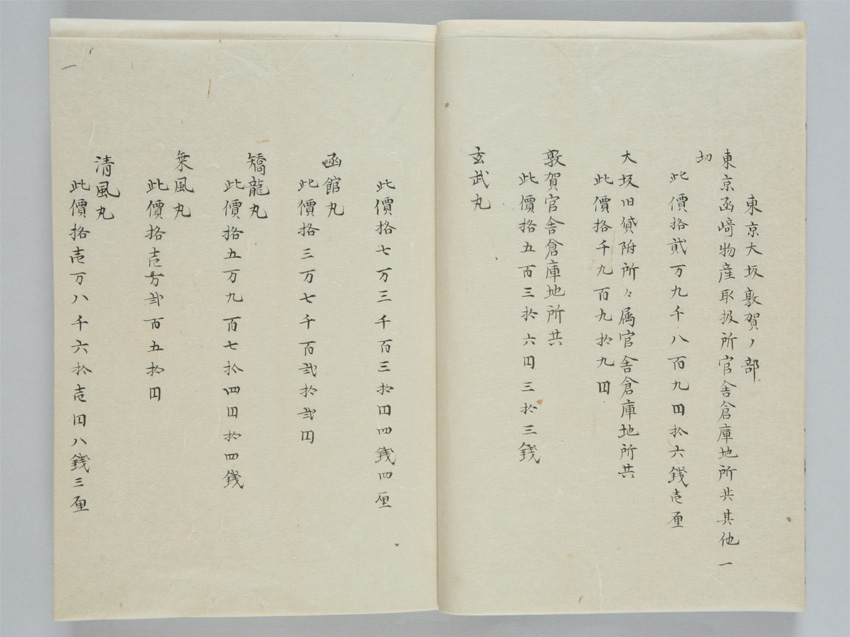 東京大坂敦賀ノ部
東京函崎物産取扱所官舎倉庫地所共其他一
切
此價拾貮万九千八百九円拾六錢壱厘
大坂旧貸附所々属官舎倉庫地所共
此價拾千九百九拾九円
敦賀官舎倉庫地所共
此價拾五百三拾六円三拾三錢
玄武丸
此價拾七万三千百三拾円四錢四厘
函館丸
此價拾三万七千百弐拾弐円
矯龍丸
此價拾五万九百七拾四円拾四錢
乗風丸
此價拾壱万弐百五拾円
清風丸
此價拾壱万八千六拾壱円八錢三厘